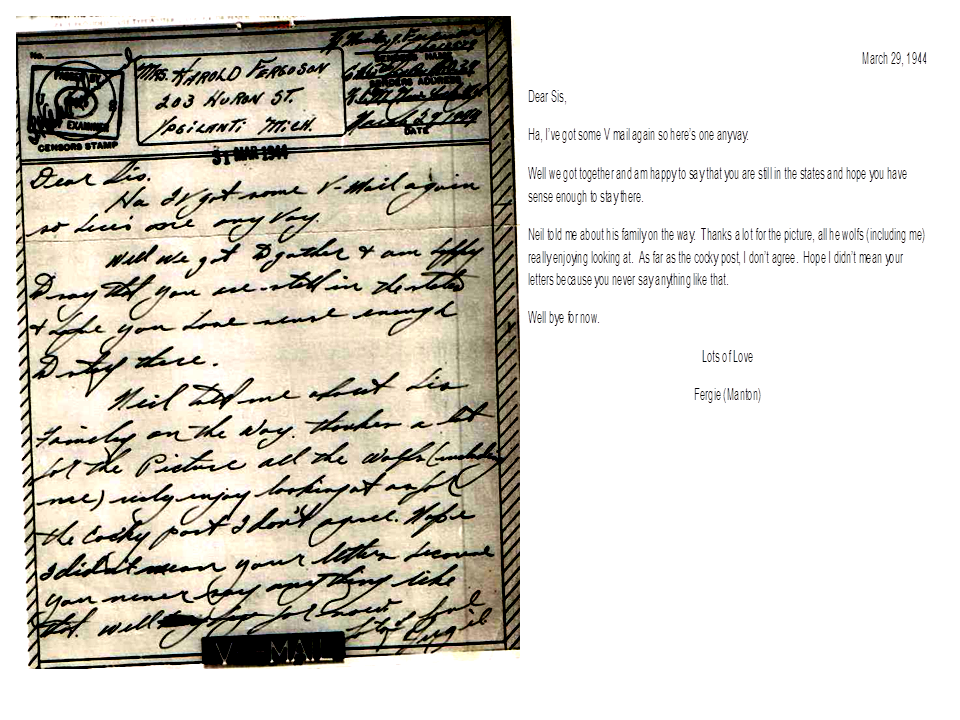 No.
CENSORS STAMP
MRS. HAROLD FERGUSON
203 HURON ST.
YPSILANTI MICH.
SENDERS NAME
SENDERS ADDRESS
March 29, 1944
DATE
31 MAR 1944
Dear Sis.
Ha I've got some V-Mail again
so here's one any vay.
Well we got together & am happy
to say that you are still in the states
& hope you have sense enough
to stay there.
Neil told me about his
Family on the way. thanks a lot
for the Picture all the wolfs (including
me) realy enjoy looking at as for
the cocky part I don't agree. Hope
I didn't mean your letters because
you never say anything like
that. well bye for now.
Lots of Love
Fergie
V - MAIL
March 29, 1944
Dear Sis,
Ha, I've got some V mail again so here's one anyvay.
Well we got together and am happy to say that you are still in the states and hope you have
sense enough to stay there.
Neil told me about his family on the way. Thanks a lot for the picture, all he wolfs (including me)
really enjoying looking at. As far as the cocky post, I don't agree. Hope I didn't mean your
letters because you never say anything like that.
Well bye for now.
Lots of Love
Fergie (Manton)